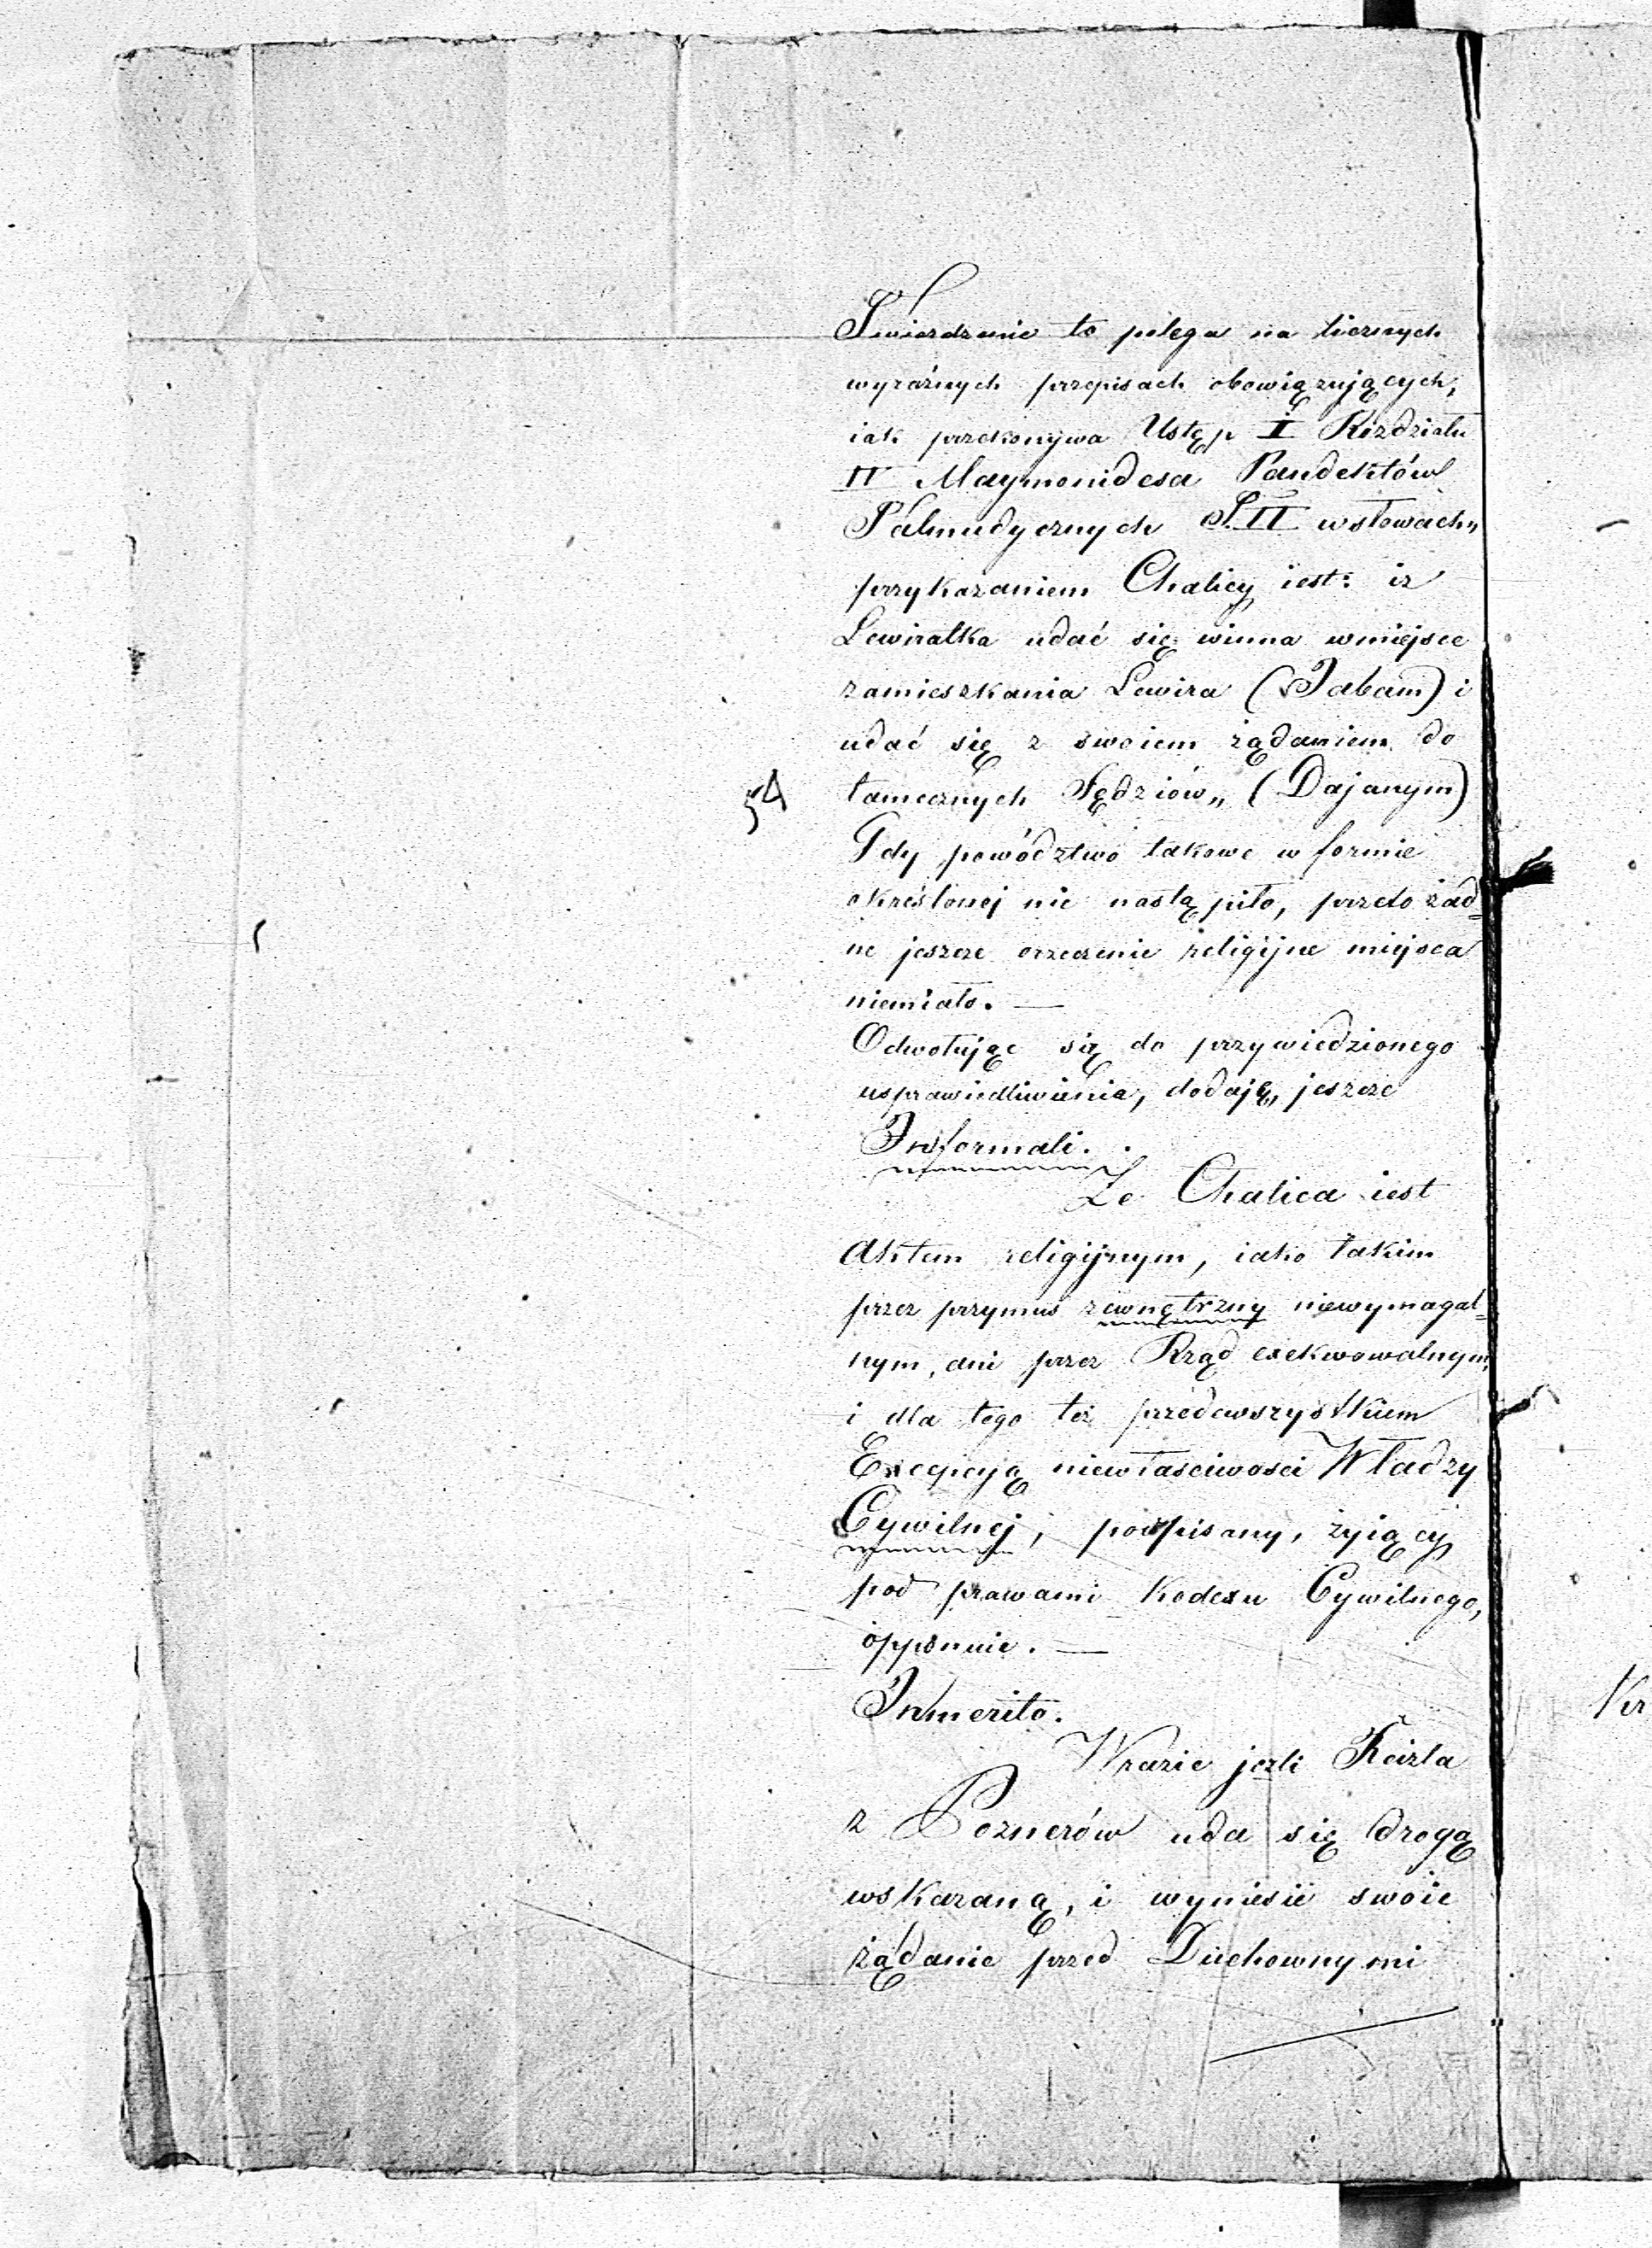 Twierdzenie to polega na licznych
wyraźnych przepisach obowiązujących,
iak przekonywa Ustęp I Rozdziału
IV Maymonidesa Pandektów
Talmudycznych T. II w słowach„
przykazaniem Chalicy iest: iż
Lewiratka udać się winna wmiejsce
zamieszkania Lewira (Jabam) i
udać się z swoiem żądaniem do
54 tamecznych Sędziów„ (Dajanym)
Gdy powództwo takowe w formie
określonej nie nastąpiło, przeto żad=
ne jeszcze orzeczenie religijne miejsca
niemiało. —
Odwołując się do przywiedzionego
usprawiedliwienia, dodaję„ jeszcze
Informali.
Że Chalica iest
Aktem religijnym, iako takim
przez przymus zewnętrzny niewymagal=
nym, ani przez Rząd exekwowalnym,
i dla tego też przedewszystkiem
Excepcyą niewłaściwości Władzy
Cywilnej, podpisany, żyiący
pod prawami Kodexu Cywilnego,
opponuie. —
Inmerito.
Wrazie jeźli Rcizla
z Poznerów uda się drogą
wskazaną, i wyniesie swoie
żądanie przed Duchownymi